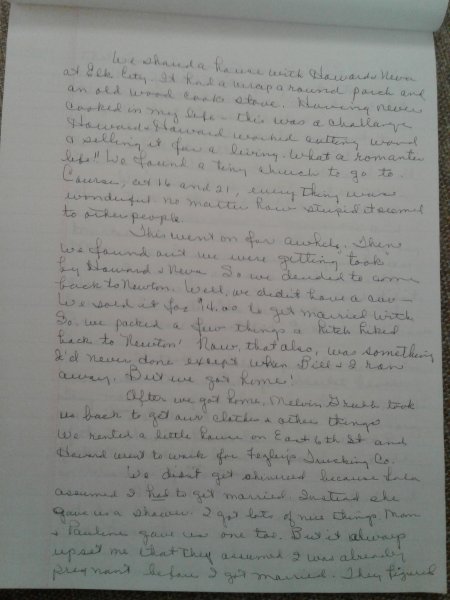 We shared a house with Howard & Neva
at Elk City. It had a wrap around porch and
an old wood cook stove. Having never
cooked in my life - this was a challenge
Howard & Howard worked cutting wood
& selling it for a living. What a romantic
life!! We found a tiny church to go to.
Course, at 16 and 21, everything was
wonderful no matter how stupid it seemed
to other people.
This went on for awhile. Then
we found out we were getting "took"
by Howard & Neva. So we decided to come
back to Newton. Well, we didn't have a car -
We sold it for $4.00 to get married with
So, we packed a few things & hitch hiked
back to Newton! Now, that also, was something
I'd never done except when Bill & I ran
away. But we got home!
After we got home, Melvin took
us back to get our clothes & other things
We rented a little house on East 6th St and
Howard went to work for Trucking Co.
We didn't get shivareed because
assumed I had to get married. Instead she
gave us a shower. I got lots of nice things. Mom
& Pauline gave us one too. But it always
upset me that they assumed I was already
pregnant before I got married. They figured